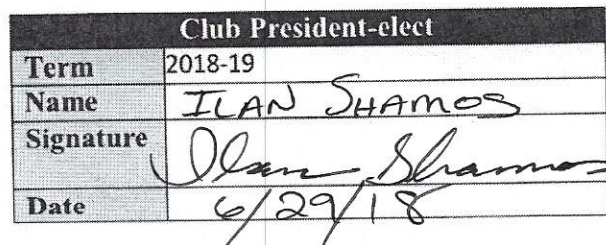 Club President-elect
Term 2018-19
Name ILAN SHAMOS
Signature Ilan Shamos
Date 6/29/18